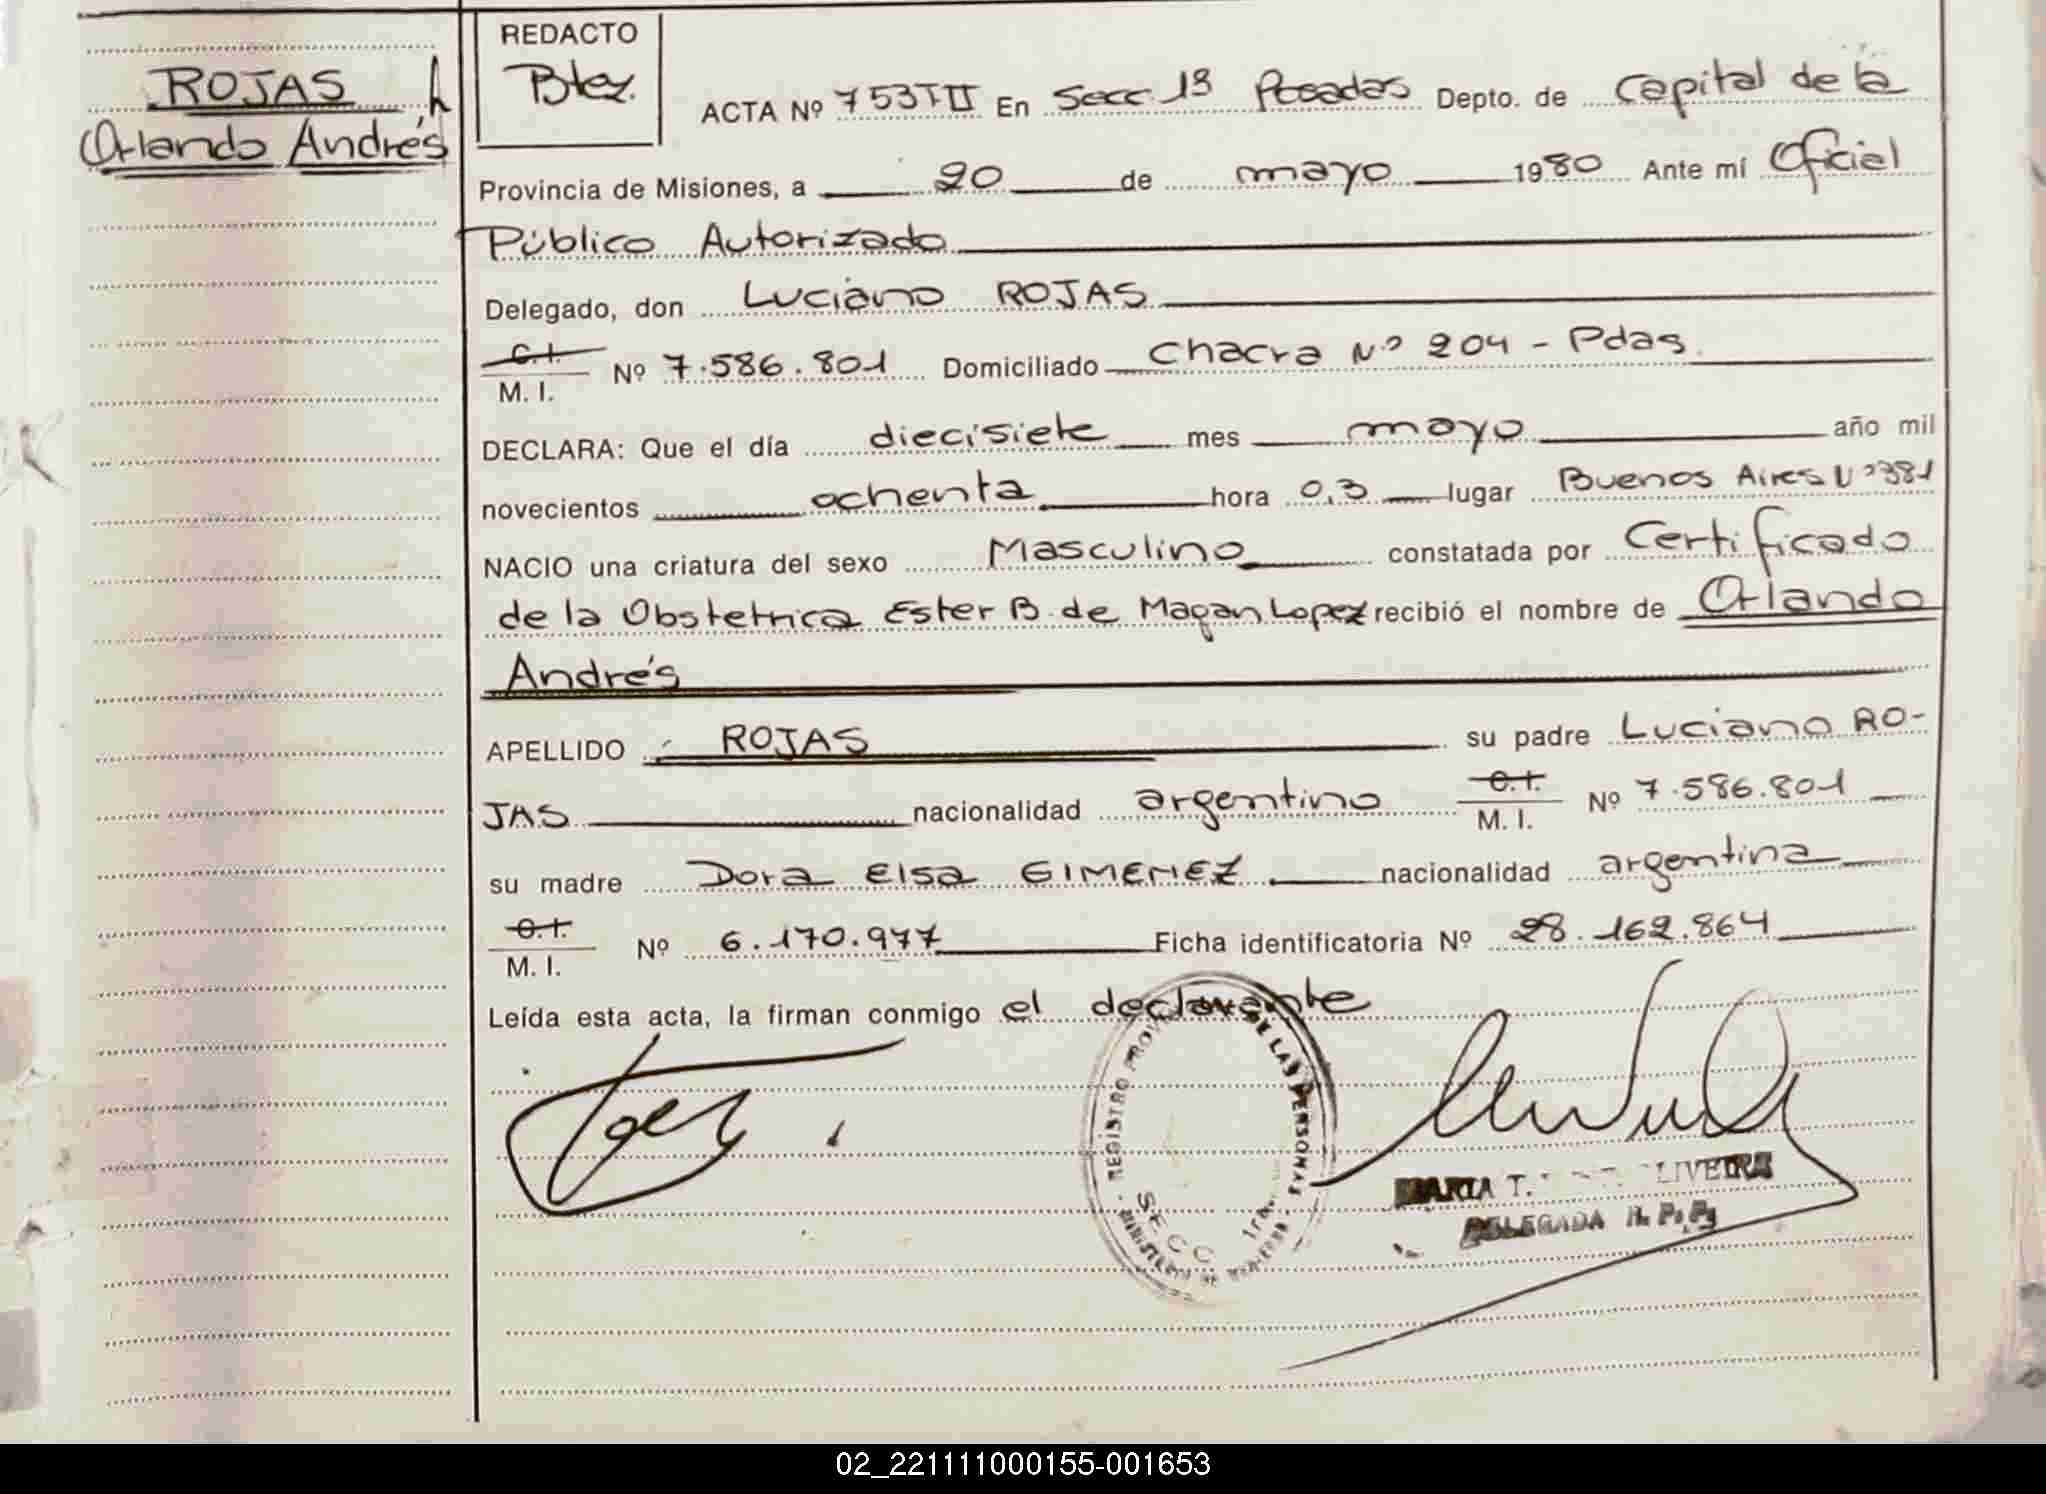 ROJAS, h
Orlando Andrés
REDACTO
Btez.
ACTA Nº 753 T II En Secc. 1ª Posadas Depto. de Capital de la
Provincia de Misiones, a 20 de mayo 1980 Ante mí Oficial
Público Autorizado
Delegado, don Luciano ROJAS
C. I.
M. I. Nº 7.586.801 Domiciliado Chacra Nº 204 - Pdas.
DECLARA: Que el día diecisiete mes mayo año mil
novecientos ochenta hora 0,3 lugar Buenos Aires Nº 381
NACIO una criatura del sexo Masculino constatada por Certificado
de la Obstetrica Ester B. de Magan Lopez recibió el nombre de Orlando
Andrés
APELLIDO ROJAS su padre Luciano RO-
JAS nacionalidad argentino C. I.
M. I. Nº 7.586.801
su madre Dora Elsa GIMENEZ nacionalidad argentina
C. I.
M. I. Nº 6.170.977 Ficha identificatoria Nº 28.162.864
Leída esta acta, la firman conmigo el declarante
REGISTRO PROV DE LAS PERSONAS
SECC 1ra.
MINISTERIO DE GOBIERNO
MARIA T. OLIVEIRA
DELEGADA R. P. P.
02_221111000155-001653